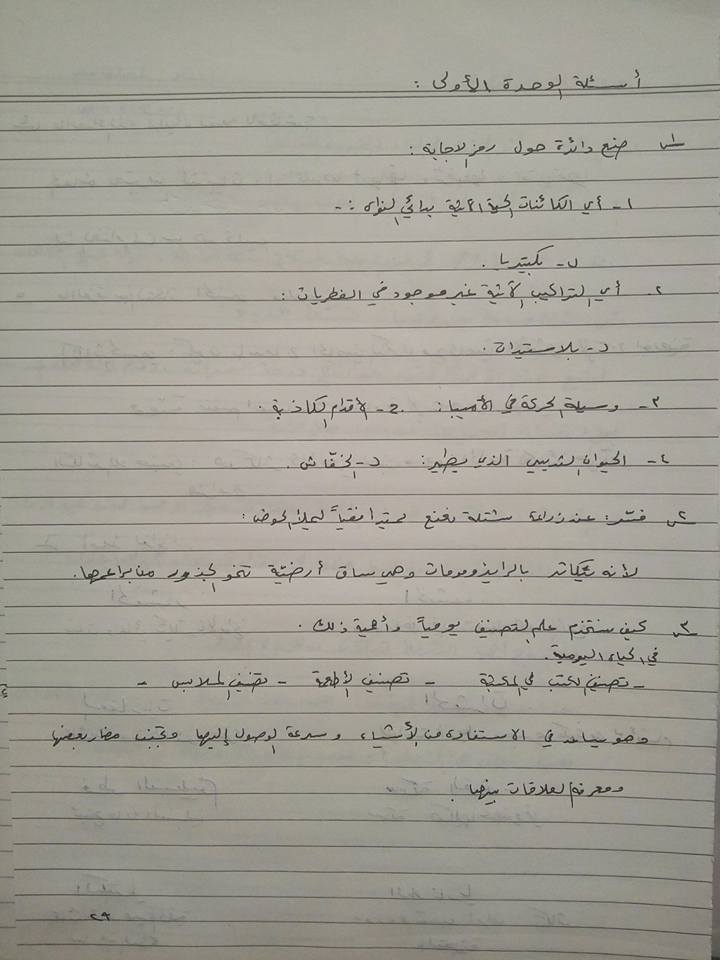 أسئلة الوحدة الأولى :
س١ ضع دائرة حول رمز الإجابة :
١- أي الكائنات الحية الآتية بدائي النواة :-
بكتيريا .
٢- أي التراكيب الآتية غير موجود في الفطريات :
د- بلاستيدات .
٣- وسيلة الحركة في الأميبا : 2- الأقدام الكاذبة .
٤- الحيوان الثديي الذي يطير : د- الخفّاش .
س٢ فسّر : عند زراعة شتلة نعنع تمتد أفقياً لتملأ الحوض :
لأنه يتكاثر بالرايزومات وهي ساق أرضيّة تنمو الجذور من براعمها .
س٣ كيف ستخدم علم التصنيف يومياً وأهمية ذلك .
في الحياة اليومية .
- تصنيف الكتب في المكتبة - تصنيف الأطعمة - تصنيف الملابس -
وهو يساعد في الاستفادة من الأشياء وسرعة الوصول إليها وتجنب مضار بعضها
ومعرفة العلاقات بينها .
٢٩